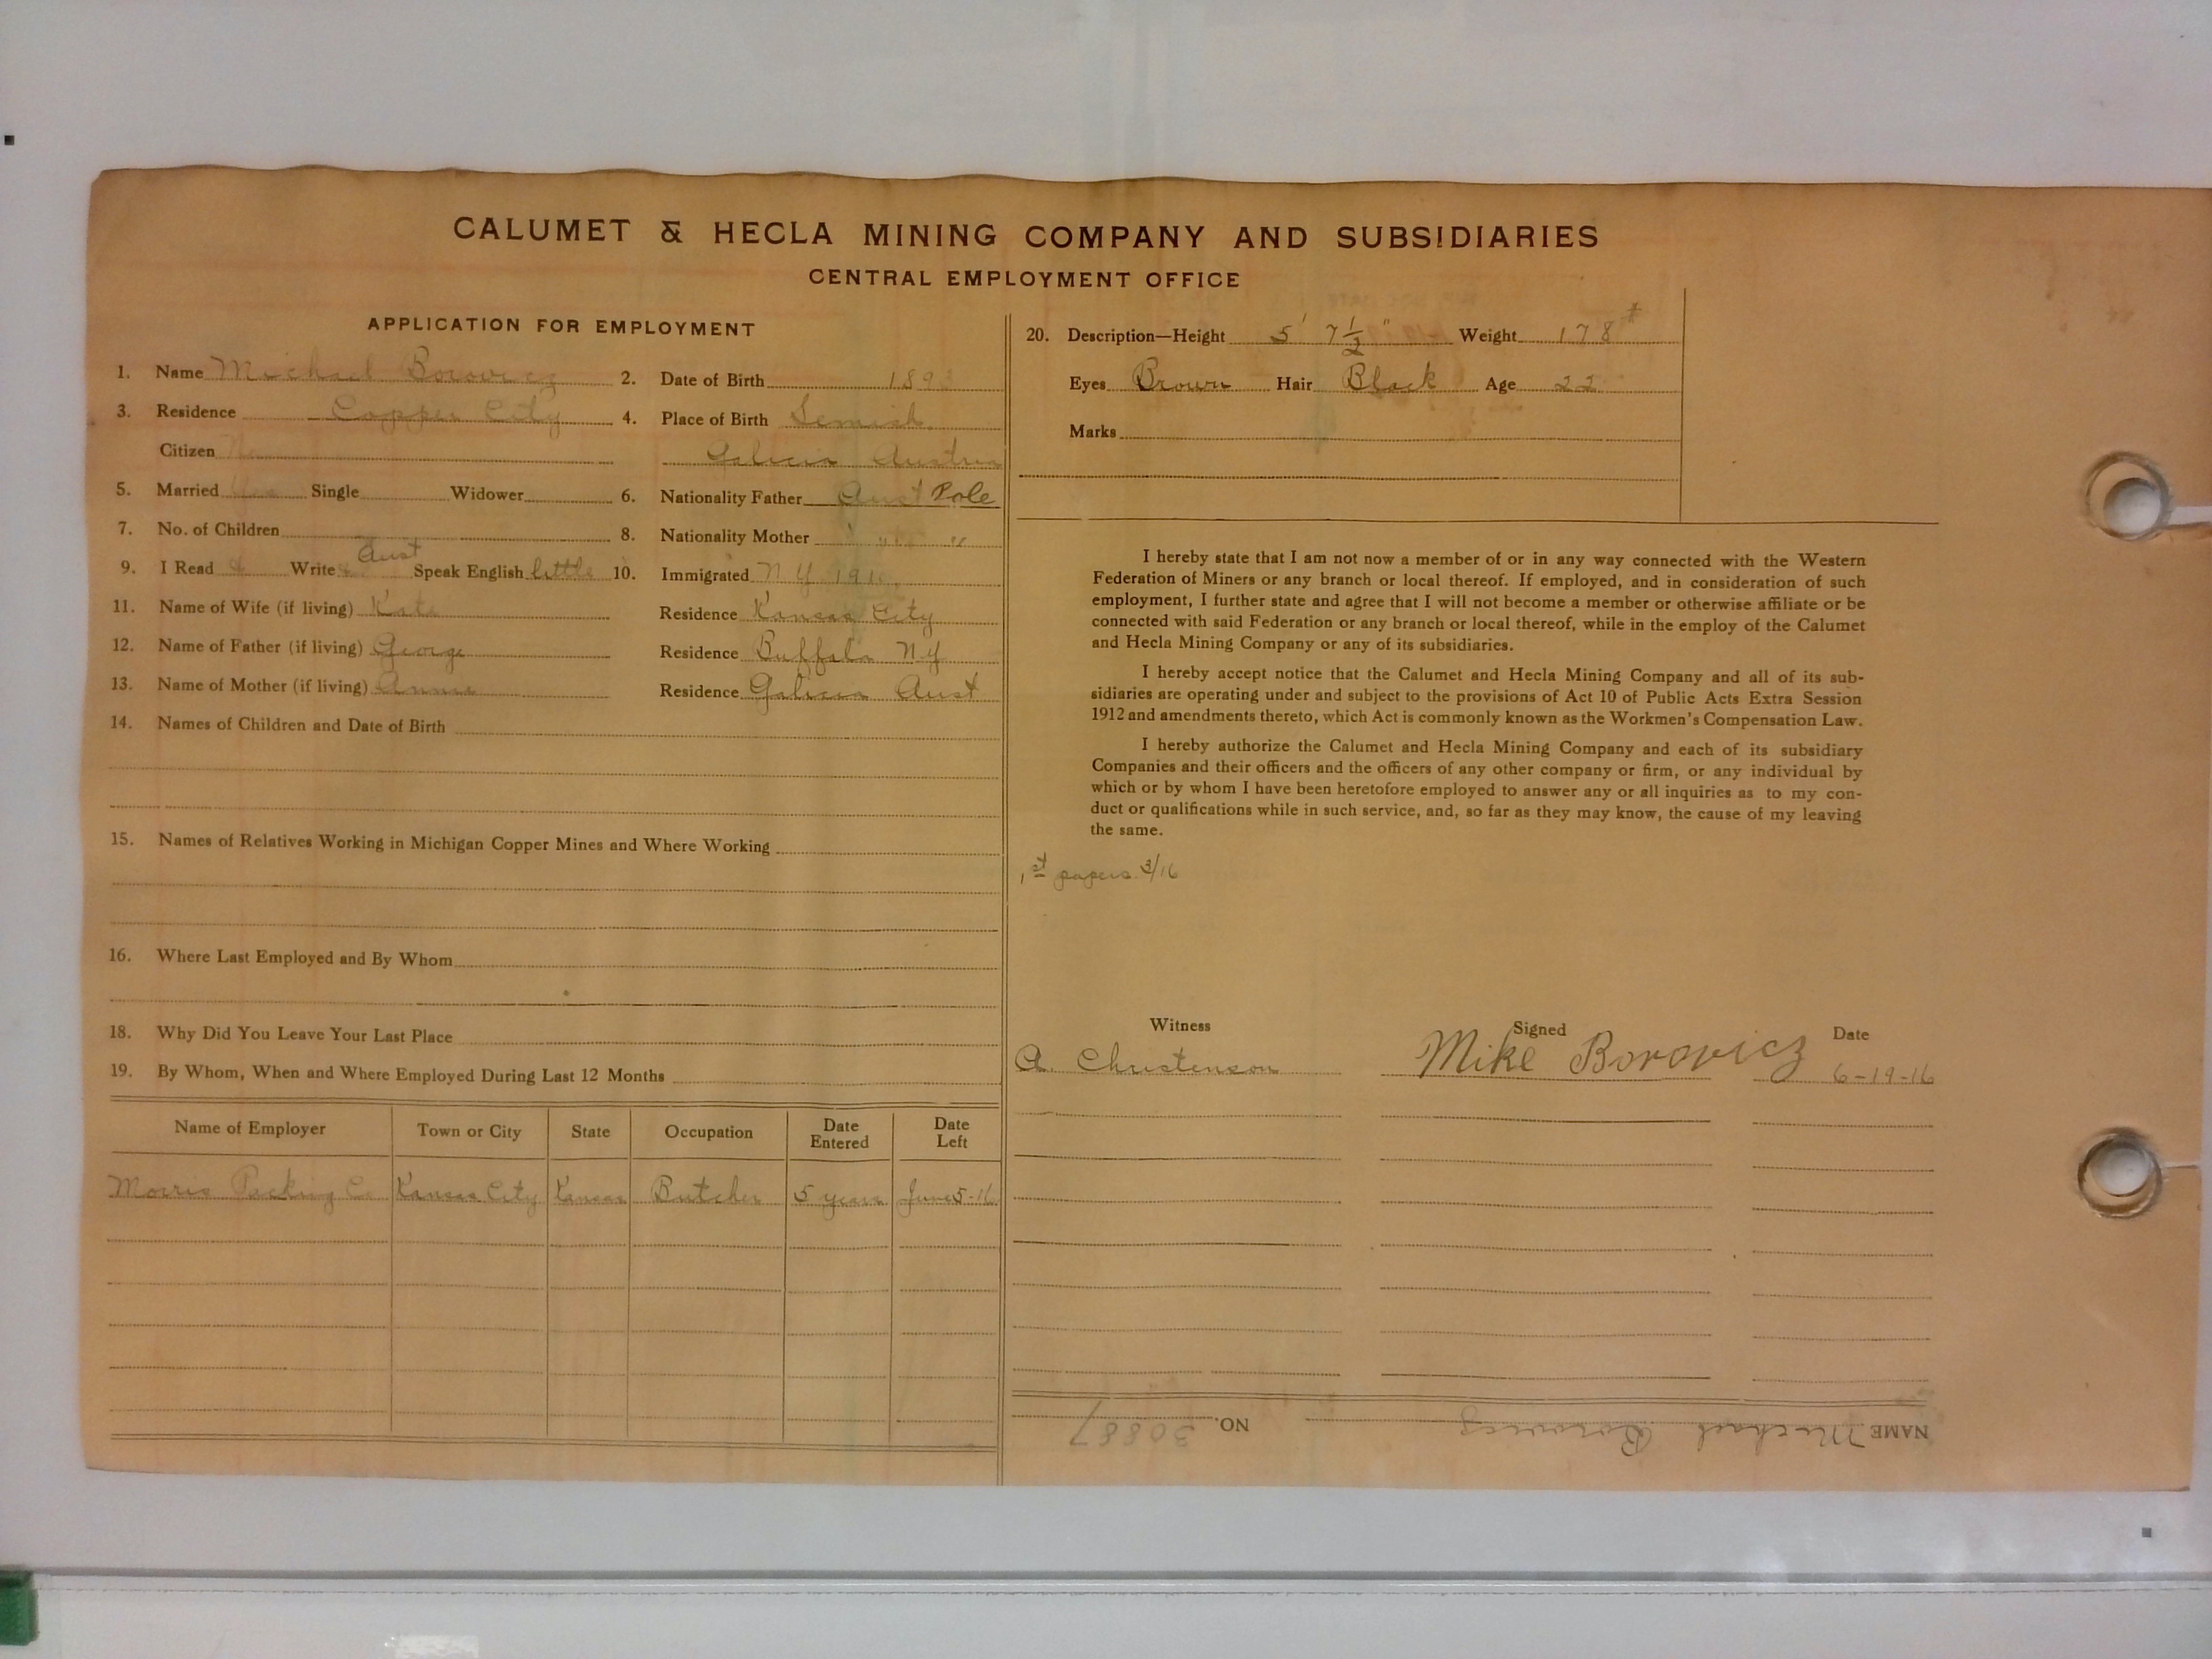 CALUMET & HECLA MINING COMPANY AND SUBSIDIARIES
CENTRAL EMPLOYMENT OFFICE
APPLICATION FOR EMPLOYMENT
1. Name Michael Borovicz 2. Date of Birth
3. Residence Copper City 4. Place of Birth
Citizen Galicia Austria
5. Married Single Widower 6. Nationality Father Aust Pole
7. No. of Children 8. Nationality Mother " "
Aust
9. I Read Write Speak English little 10. Immigrated N Y
11. Name of Wife (if living) Kate Residence Kansas City
12. Name of Father (if living) George Residence Buffalo N.Y
13. Name of Mother (if living) Annie Residence Galicia Aust
14. Names of Children and Date of Birth
15. Names of Relatives Working in Michigan Copper Mines and Where Working
16. Where Last Employed and By Whom
18. Why Did You Leave Your Last Place
19. By Whom, When and Where Employed During Last 12 Months
Name of Employer Town or City State Occupation Date Entered Date Left
Morris Packing Co Kansas City Kansas Butcher 5 years June 5-16
20. Description—Height 5' 7 1/2" Weight 178#
Eyes Brown Hair Black Age 22
Marks
I hereby state that I am not now a member of or in any way connected with the Western
Federation of Miners or any branch or local thereof. If employed, and in consideration of such
employment, I further state and agree that I will not become a member or otherwise affiliate or be
connected with said Federation or any branch or local thereof, while in the employ of the Calumet
and Hecla Mining Company or any of its subsidiaries.
I hereby accept notice that the Calumet and Hecla Mining Company and all of its sub-
sidiaries are operating under and subject to the provisions of Act 10 of Public Acts Extra Session
1912 and amendments thereto, which Act is commonly known as the Workmen's Compensation Law.
I hereby authorize the Calumet and Hecla Mining Company and each of its subsidiary
Companies and their officers and the officers of any other company or firm, or any individual by
which or by whom I have been heretofore employed to answer any or all inquiries as to my con-
duct or qualifications while in such service, and, so far as they may know, the cause of my leaving
the same.
1st papers 3/16
Witness Signed Date
A. Christenson Mike Borovicz 6-19-16
NAME Michael Borovicz NO. 30887